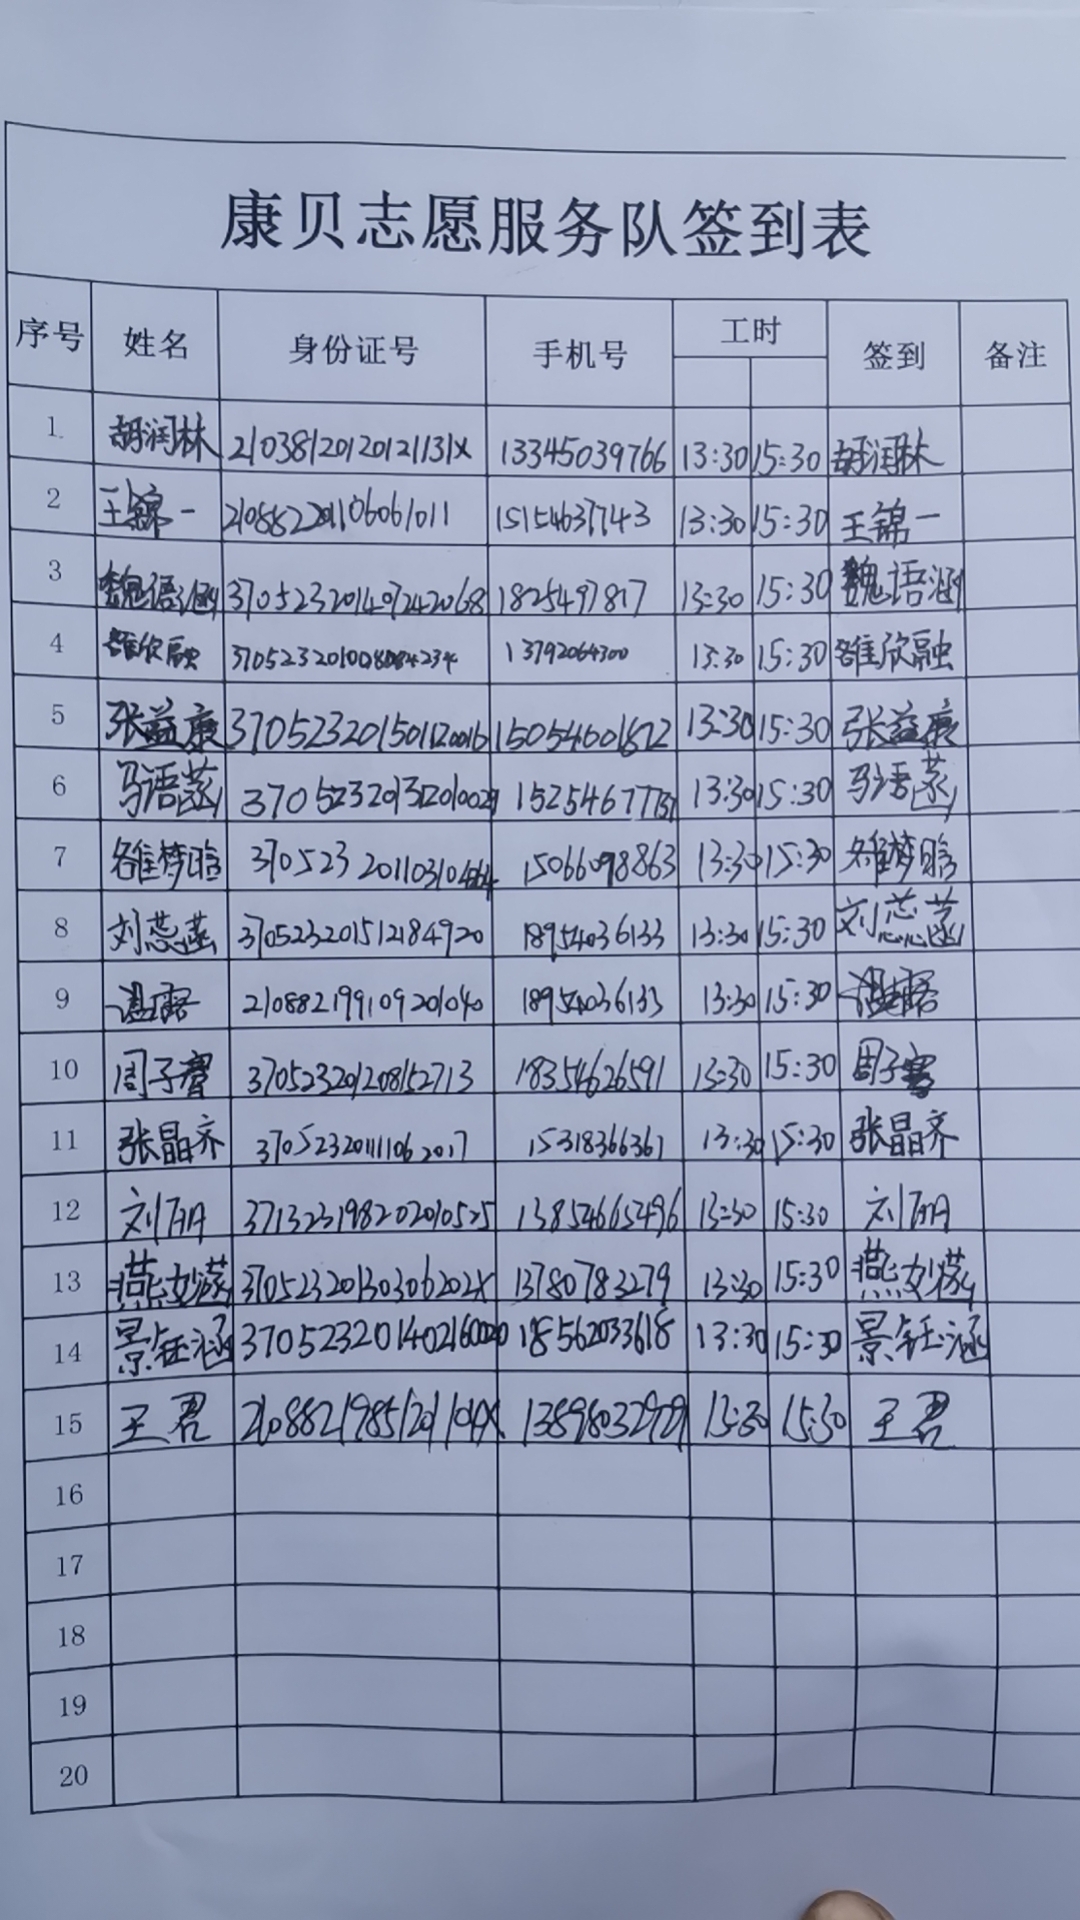 康贝志愿服务队签到表
序号 姓名 身份证号 手机号 工时 签到 备注
1 胡润林 21038120120121131X 13345039766 13:30 15:30 胡润林
2 王锦一 210882201106061011 15154637743 13:30 15:30 王锦一
3 魏语涵 370523201407242068 1825497817 13:30 15:30 魏语涵
4 雒欣融 13792064300 13:30 15:30 雒欣融
5 张益康 370523201501120016 15054601672 13:30 15:30 张益康
6 马语菡 370523201312010029 13:30 15:30 马语菡
7 雒梦晗 15066098863 13:30 15:30 雒梦晗
8 刘蕊菡 370523201512184920 18954036133 13:30 15:30 刘蕊菡
9 210882199109201040 18954036133 13:30 15:30
10 周子 370523201208152713 18354626591 13:30 15:30 周子
11 张晶齐 370523201111062017 15318366361 13:30 15:30 张晶齐
12 刘丽 371323198202010525 13854665496 13:30 15:30 刘丽
13 燕妙菡 37052320130306202X 13780783279 13:30 15:30 燕妙菡
14 景钰涵 370523201402160020 18562033618 13:30 15:30 景钰涵
15 王君 21088219851201104X 13898032929 13:30 15:30 王君
16
17
18
19
20